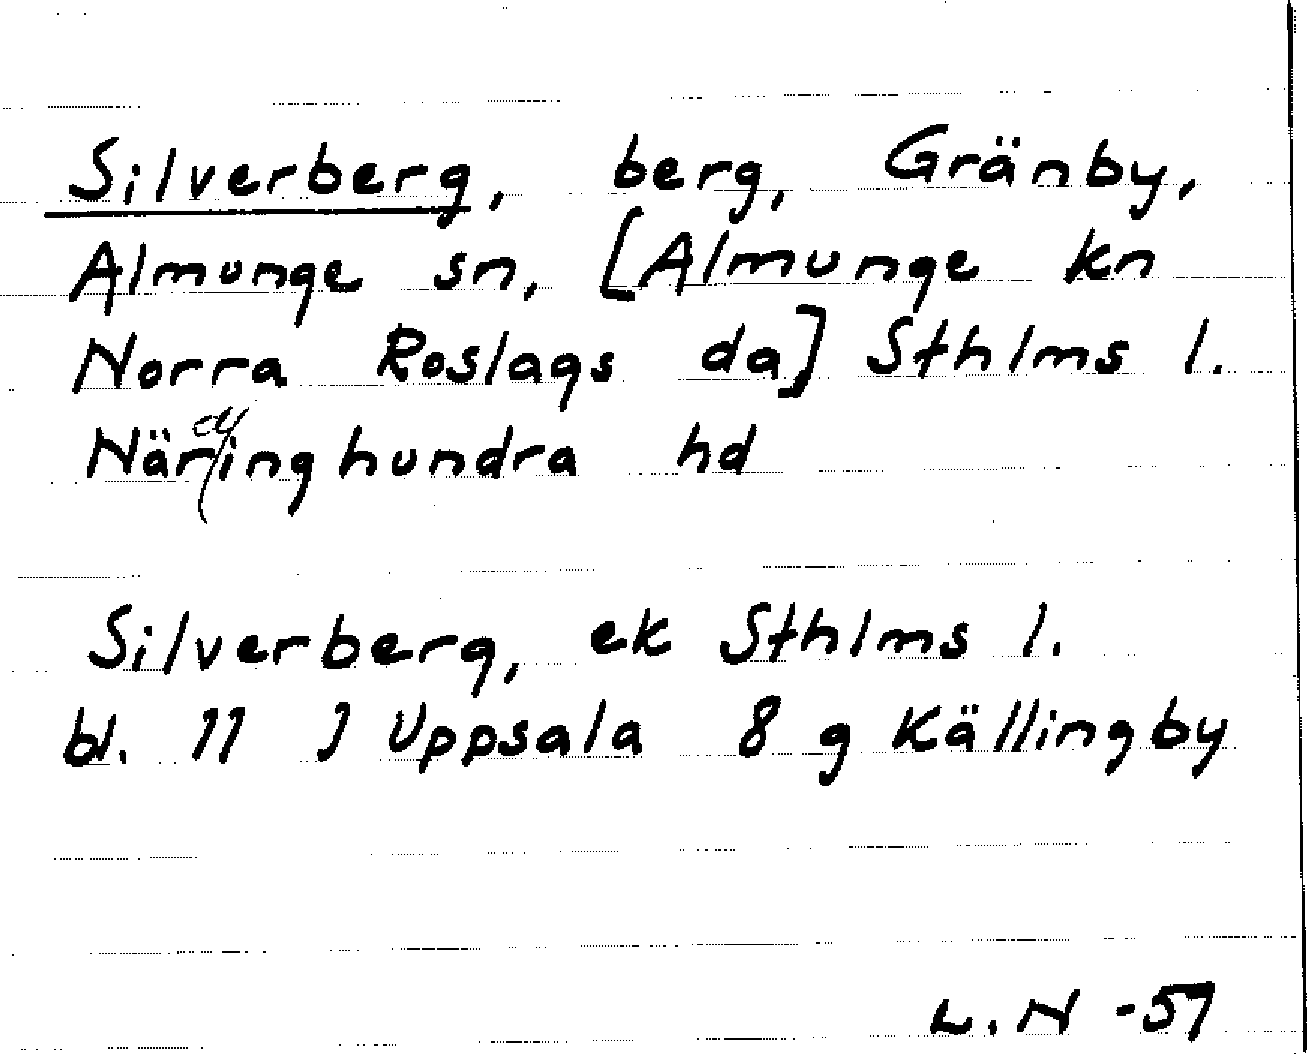 Silverberg, berg, Gränby,
Almunge sn, [Almunge kn
Norra Roslags da] Sthlms l.
Närdinghundra hd
Silverberg, ek Sthlms l.
bl. 11 J Uppsala 8 g Källingby
L. N -57